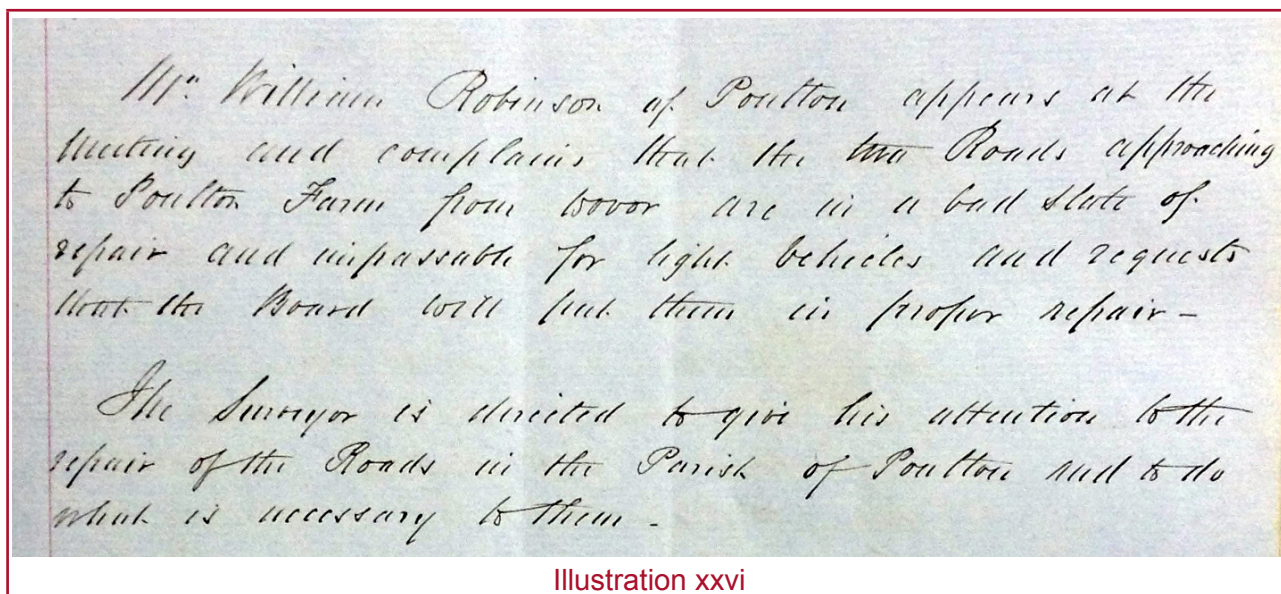 Mr. William Robinson of Poulton appears at the
Meeting and complains that the two Roads approaching
to Poulton Farm from are in a bad state of
repair and impassable for light Vehicles and requests
that the Board will put them in proper repair -
The Surveyor is directed to give his attention to the
repair of the Roads in the Parish of Poulton and to do
what is necessary to them -
Illustration xxvi